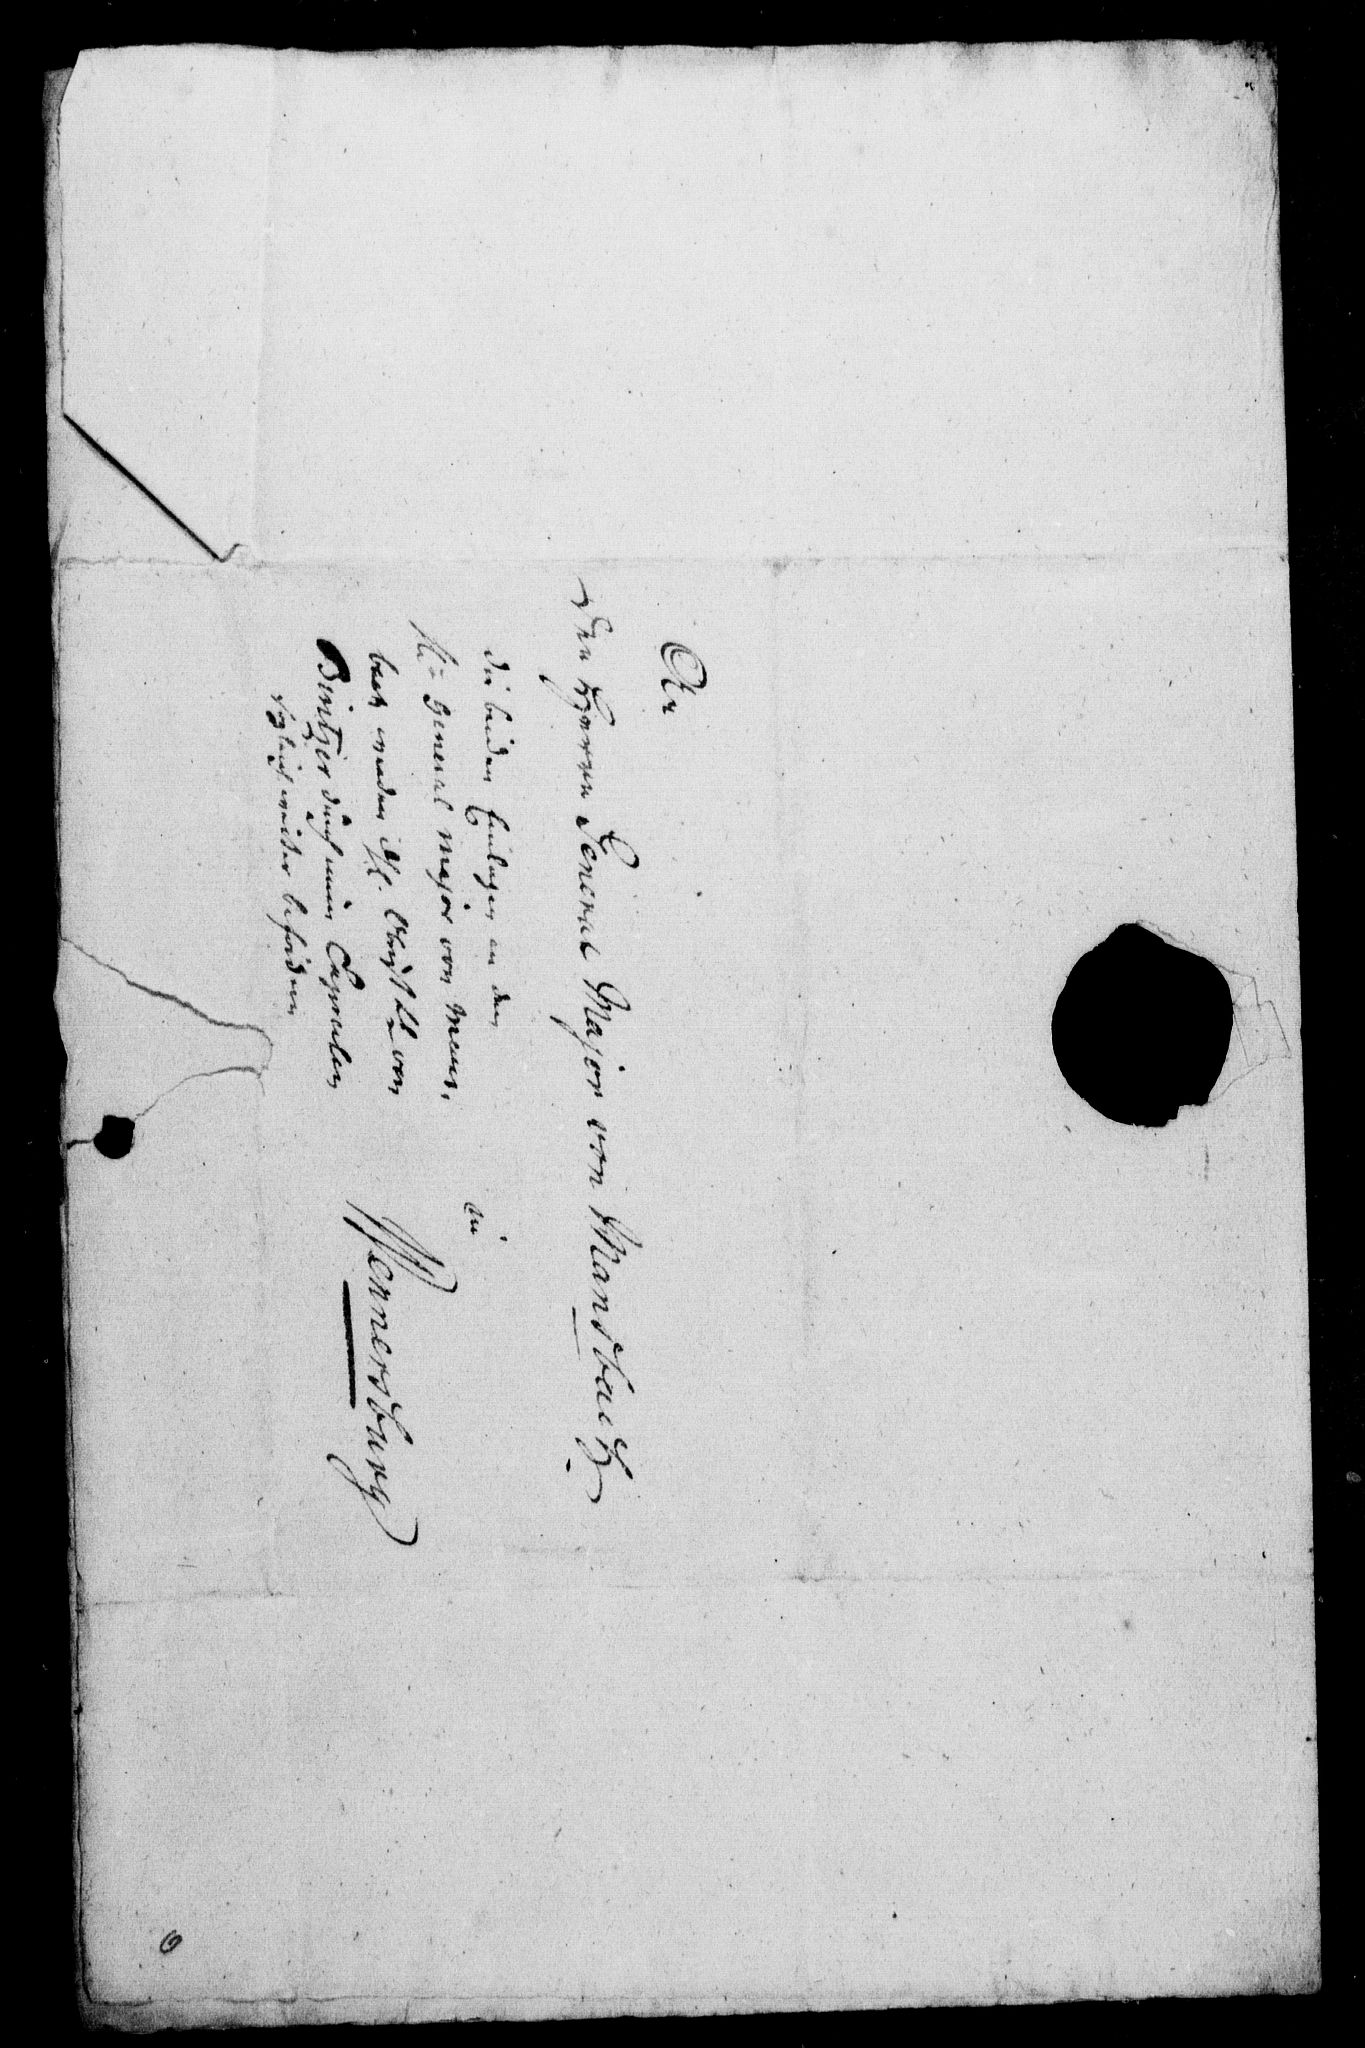 An
den Herrn General Major von Mansbach
die beiden Einlagen an den
General Major von Mans,
bach werden H. Obrist Lt von
Bintzer durch einen Expressen
sogleich weiter befördern
in
Wennersburg